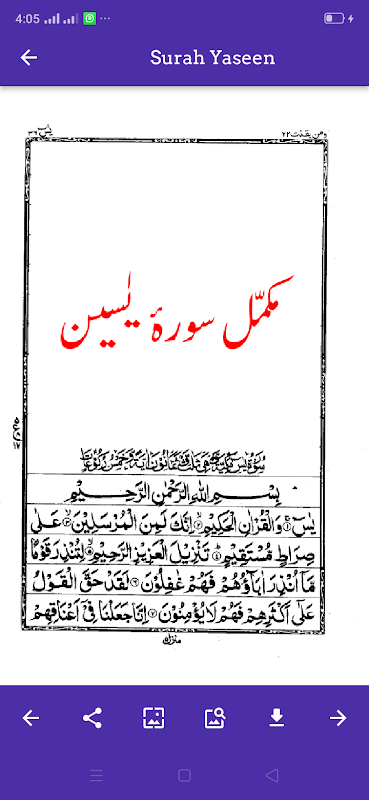 4:05
Surah Yaseen
یٰسٓ ۳۶
ومن یقنت ۲۲
مکمّل سورۂ یٰسین
بِسْمِ اللهِ الرَّحْمٰنِ الرَّحِيْمِ
يٰسٓ ۚ﴿۱﴾ وَالْقُرْاٰنِ الْحَكِيْمِ ۙ﴿۲﴾ اِنَّكَ لَمِنَ الْمُرْسَلِيْنَ ۙ﴿۳﴾ عَلٰى
صِرَاطٍ مُّسْتَقِيْمٍ ؕ﴿۴﴾ تَنْزِيْلَ الْعَزِيْزِ الرَّحِيْمِ ۙ﴿۵﴾ لِتُنْذِرَ قَوْمًا
مَّاۤ اُنْذِرَ اٰبَآؤُهُمْ فَهُمْ غٰفِلُوْنَ ﴿۶﴾ لَقَدْ حَقَّ الْقَوْلُ
عَلٰۤى اَكْثَرِهِمْ فَهُمْ لَا يُؤْمِنُوْنَ ﴿۷﴾ اِنَّا جَعَلْنَا فِيْۤ اَعْنَاقِهِمْ
منزل